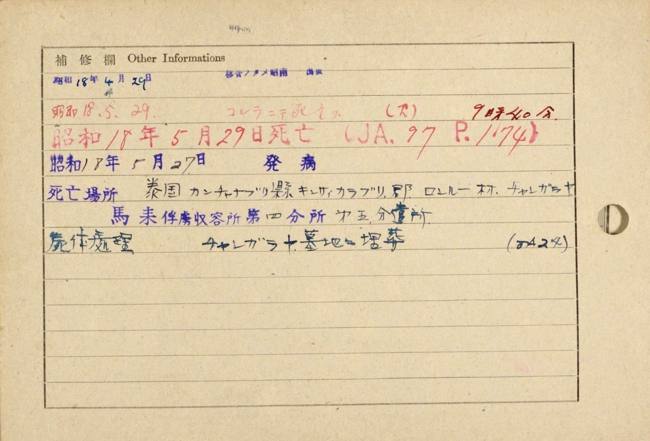 補修欄 Other Informations
昭和18年4月29日 移管ノタメ昭南 出発
昭和18.5.29. コレラニテ死亡ス (火) 9時40分
昭和18年5月29日死亡 (JA. 97 P. 174)
昭和18年5月27日 発病
死亡場所 泰国カンチャナブリ縣キンサイカラブリ郡ロンルー村、チャンガラヤ
馬来俘虜収容所第四分所第五分遣所
屍体処理 チャンガラヤ墓地ニ埋葬